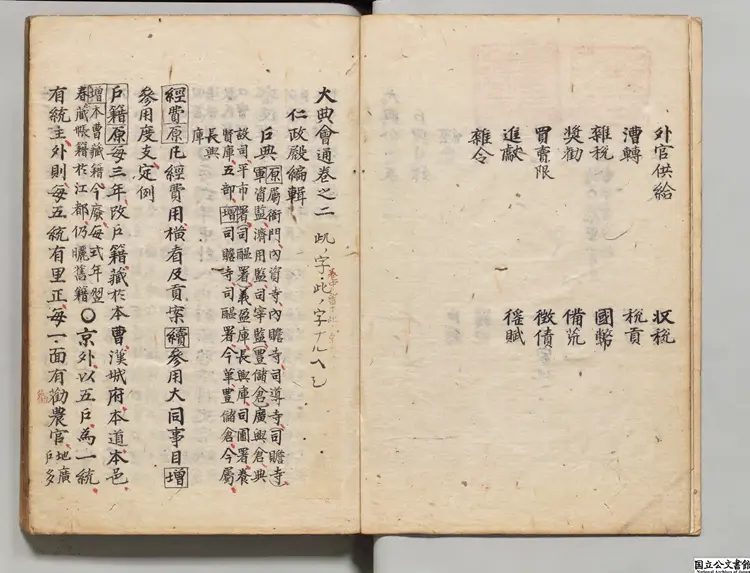 外官供給　收税
漕轉　税貢
雜税　國幣
奬勸　備荒
買賣限　徴債
進獻　徭賦
雜令
大典會通卷之二　此字ハ此ノ字ナルヘシ
仁政殿編輯
戸典 原 屬衙門內資寺內贍寺司導寺司贍寺
軍資監濟用監司宰監豊儲倉廣興倉典
設司平市署司醞署義盈庫長興庫司圃署養
賢庫五部 增 司贍寺司醞署今革豊儲倉今屬
長興
庫
經費 原 凡經費用橫看及貢案 續 參用大同事目 增
參用度支定例
戸籍 原 每三年改戸籍藏於本曹漢城府本道本邑
增 本曹藏籍今廢每式年翌
春藏帳籍於江都仍曬舊籍 ○京外以五戸為一統
有統主外則每五統有里正每一面有勸農官 地廣
戸多
国立公文書館
National Archives of Japan